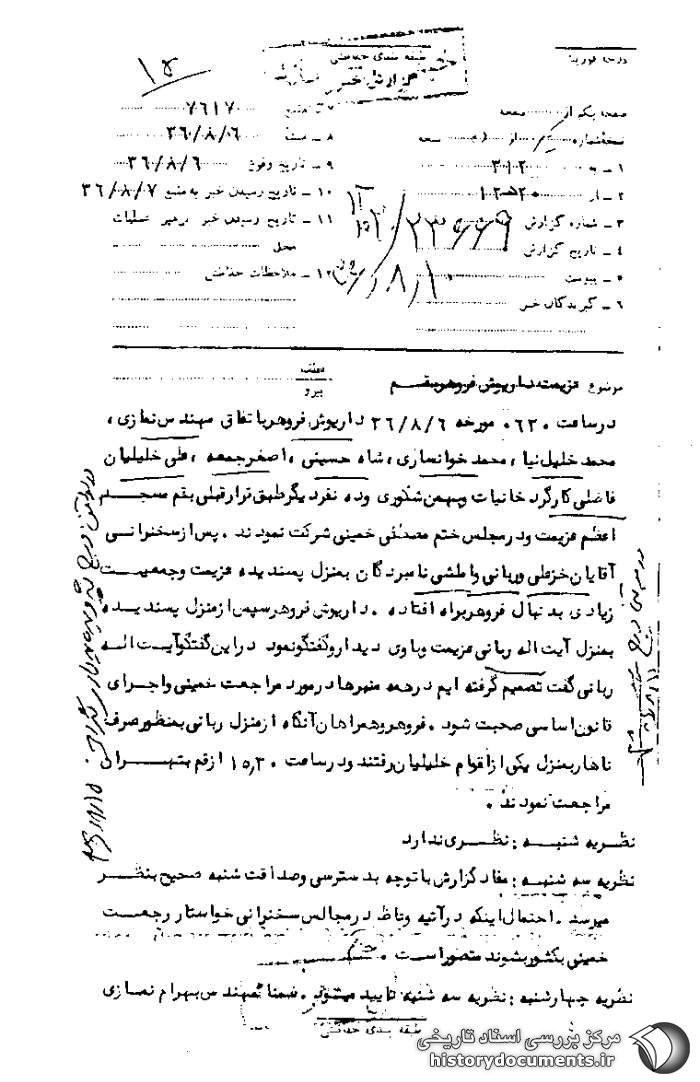 طبقه بندی حفاظتی
گزارش خبر
درجه فوریت
۱۵
صفحه یکم از صفحه
نسخه شماره از نسخه
۱ ـ به ۳۱۲
۲ ـ از ۲۰ه۱۲
۳ ـ شماره گزارش
۴ ـ تاریخ گزارش
۵ ـ پیوست
۶ ـ گیرندگان خبر
۷ ـ منبع ۷۶۱۷
۸ ـ منشأ ۳۶/۸/۰۶
۹ ـ تاریخ وقوع ۳۶/۸/۶
۱۰ ـ تاریخ رسیدن خبر به منبع ۳۶/۸/۷
۱۱ ـ تاریخ رسیدن خبر برهبر عملیات
محل
۱۲ ـ ملاحظات حفاظتی
موضوع عزیمت داریوش فروهر بقم
عطف
پیرو
در ساعت ۰۶۳۰ مورخه ۳۶/۸/۶ داریوش فروهر باتفاق مهندس نمازی ،
محمد خلیل نیا ، محمد خوانساری ، شاه حسینی ، اصغر جمعه ، علی خلیلیان
فاضلی کارگرد خانیات وبهمن شکوری وده نفر دیگر طبق قرار قبلی بقم مسجد
اعظم عزیمت ودر مجلس ختم مصطفی خمینی شرکت نمودند . پس از سخنرانی
آقایان خزعلی وربانی واملشی نامبردگان بمنزل پسندیده عزیمت وجمعیت
زیادی بدنبال فروهر براه افتاده . داریوش فروهر سپس از منزل پسندیده
بمنزل آیت اله ربانی عزیمت وباوی دیدار وگفتگو نمود در این گفتگو آیت اله
ربانی گفت تصمیم گرفته ایم در همه منبرها در مورد مراجعت خمینی واجرای
قانون اساسی صحبت شود . فروهر وهمراهان آنگاه از منزل ربانی بمنظور صرف
ناهار بمنزل یکی از اقوام خلیلیان رفتند ودر ساعت ۱۵٫۳۰ از قم بتهران
مراجعت نمودند .
نظریه شنبه : نظری ندارد
نظریه سه شنبه : مفاد گزارش با توجه بدسترسی وصداقت شنبه صحیح بنظر
میرسد . احتمال اینکه در آتیه وعاظ در مجالس سخنرانی خواستار رجعت
خمینی بکشور بشوند متصور است .
نظریه چهارشنبه : نظریه سه شنبه تایید میشود . ضمنا مهندس بهرام نمازی
طبقه بندی حفاظتی
مرکز بررسی اسناد تاریخی
historydocuments.ir